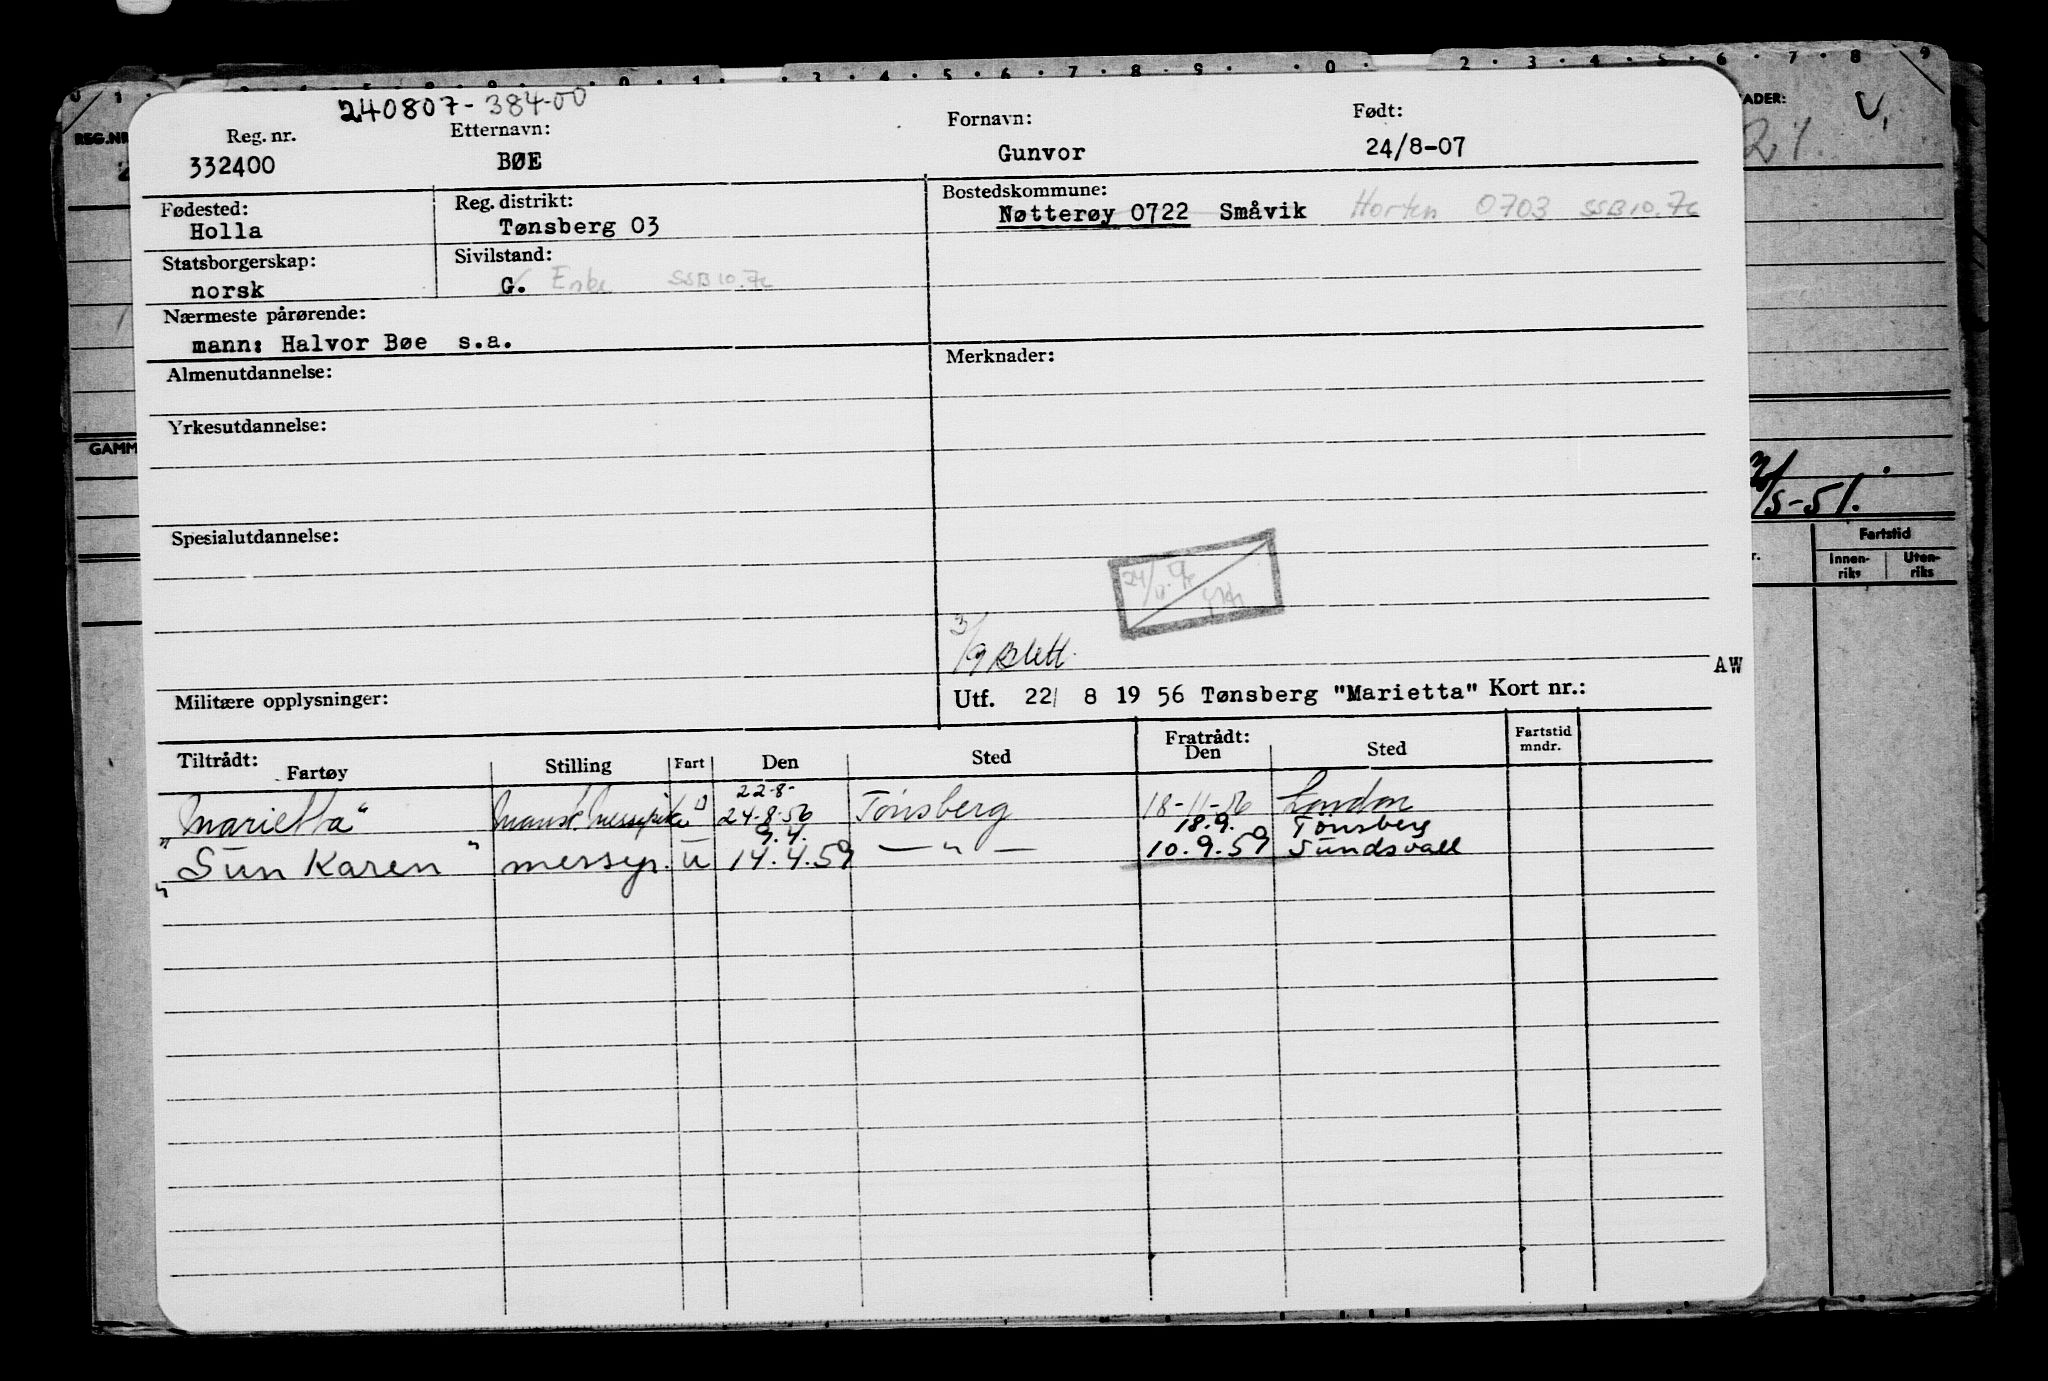 240807-384-00
Reg. nr. Etternavn: Fornavn: Født:
332400 BØE Gunvor 24/8-07
Fødested: Reg. distrikt: Bostedskommune:
Holla Tønsberg 03 Nøtterøy 0722 Småvik Horten 0703 SSB 10.7c
Statsborgerskap: Sivilstand:
norsk G. Enke SSB 10.7c
Nærmeste pårørende:
mann: Halvor Bøe s.a.
Almenutdannelse: Merknader:
Yrkesutdannelse:
Spesialutdannelse:
3/9 Slett
AW
Militære opplysninger: Utf. 22/ 8 19 56 Tønsberg "Marietta" Kort nr.:
Tiltrådt: Fratrådt: Fartstid mndr.
Fartøy Stilling Fart Den Sted Den Sted
22-8-
"Marietta" U 24-8-56 Tønsberg 18-11-56 London
9.4. 18.9. Tönsberg
"Sun Karen" messep. U 14.4.59 — " — 10.9.59 Sundsvall
REG.NR
GAMM
ADER:
21.
/5-51.
Fartstid
Innen-riks Uten-riks